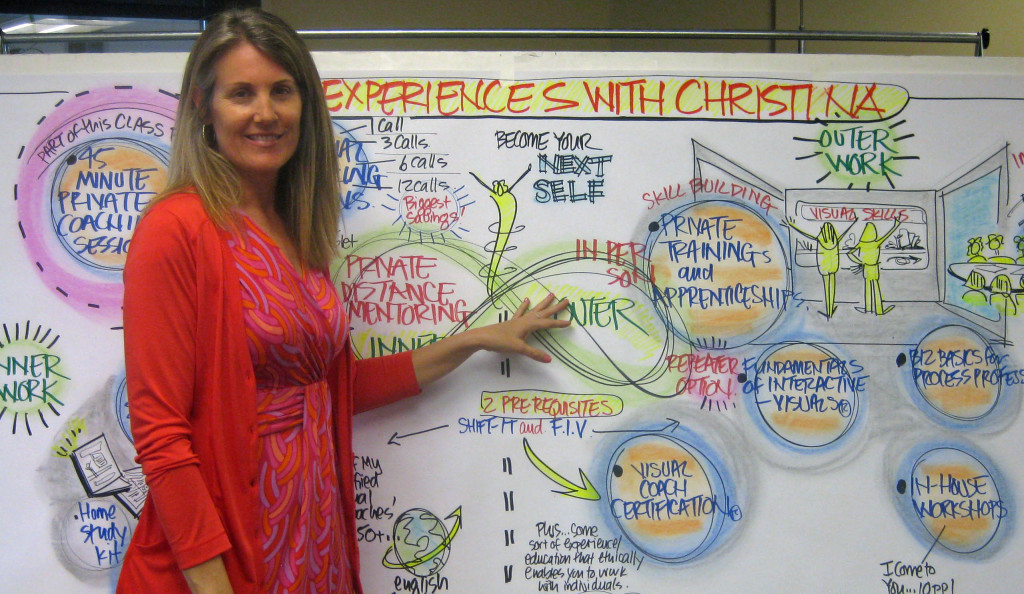 EXPERIENCES WITH CHRISTINA
PART of this CLASS
45
MINUTE
PRIVATE
COACHING
SESSION
1 Call
3 Calls
6 calls
12 calls
Biggest
Savings!
BECOME YOUR
NEXT
SELF
OUTER
WORK
SKILL BUILDING
PRIVATE
TRAININGS
and
APPRENTICESHIPS
VISUAL SKILLS
PRIVATE
DISTANCE
MENTORING
INNER
IN PER
SON
OUTER
INNER
WORK
REPEATER
OPTION
FUNDAMENTALS
OF INTERACTIVE
VISUALS®
BIZ BASICS for
PROCESS PROFESS
2 PRE-REQUISITES
SHIFT-IT and F.I.V.
VISUAL
COACH
CERTIFICATION®
IN-HOUSE
WORKSHOPS
Home
study
kit
of My
50+...
english
Plus... some
sort of experience/
education that ethically
enables you to work
with individuals.
I come to
YOU...